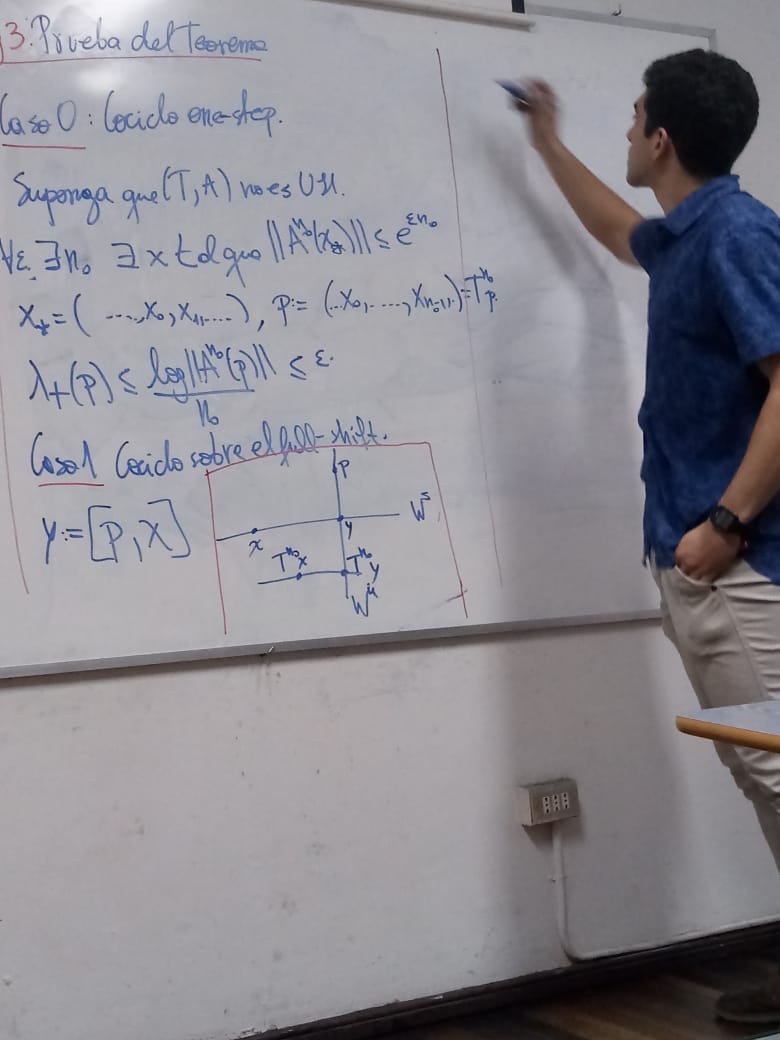 3. Prueba del Teorema
Caso 0: Cociclo one-step.
Suponga que (T, A) no es UH.
∀ε, ∃n₀ ∃x tal que ||Aⁿ⁰(x⋆)|| ≤ e^{εn₀}
x⋆ = (..., x₀, x₁, ...), p := (..x₀, ..., x_{n₀-1}, ..) = T^{n₀}p.
λ₊(p) ≤ log||A^{n₀}(p)|| / n₀ ≤ ε.
Caso 1 Cociclo sobre el full-shift.
y := [p, x]
p
x
y
Wˢ
T^{n₀}x
T^{n₀}y
Wᵘ